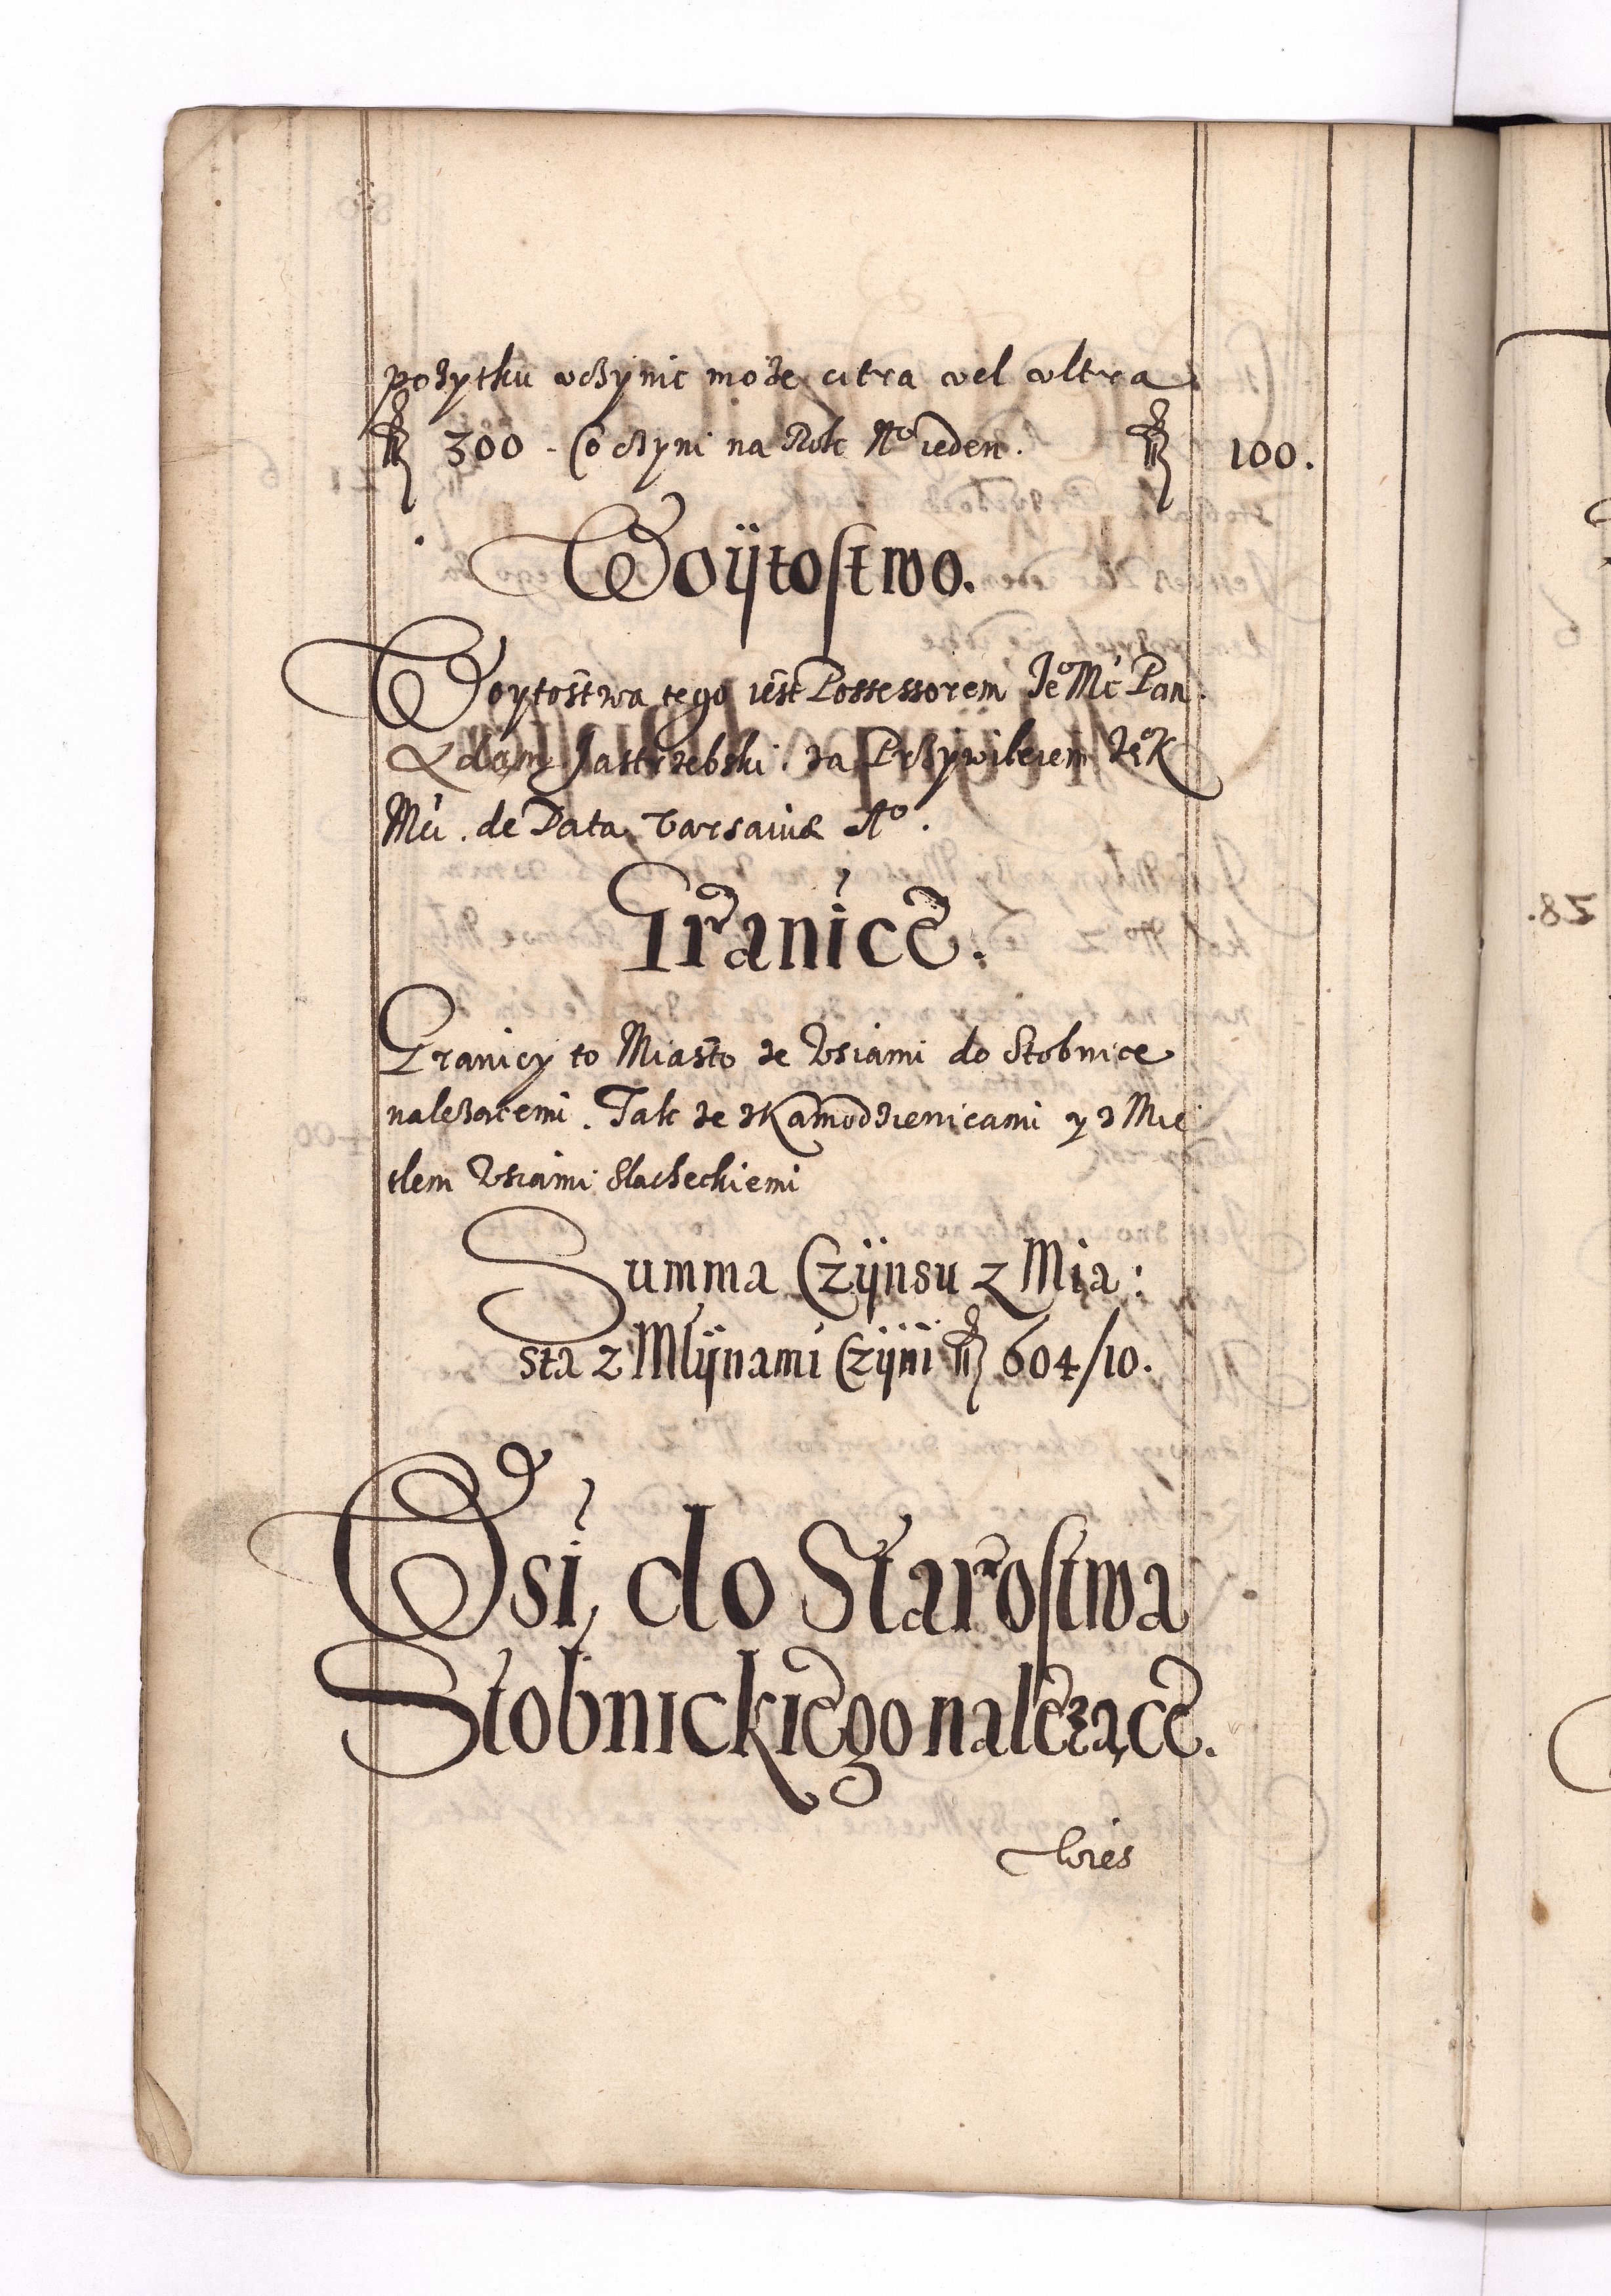 pożytku uczynic może citra vel ultra
fl 300 - Co czyni na Rok No ieden. fl 100.
Woÿtostwo.
Woytostwa tego iest Possessorem Je⁰ Mć Pan
Adam Jastrzebski. za Przywileiem Je⁰ K
Mći. de Data Varsaviæ A⁰.
Granice.
Graniczy to Miasto ze Wsiami do Stobnice
należacemi. Tak ze z Kamodzienicami y z Mie
tlem Wsiami Slacheckiemi
Summa Czÿnsu z Mia:
sta z Mlÿnami Czÿni fl 604/10.
Wsi, do Starostwa
Stobnickiego należące.
Wies
28.